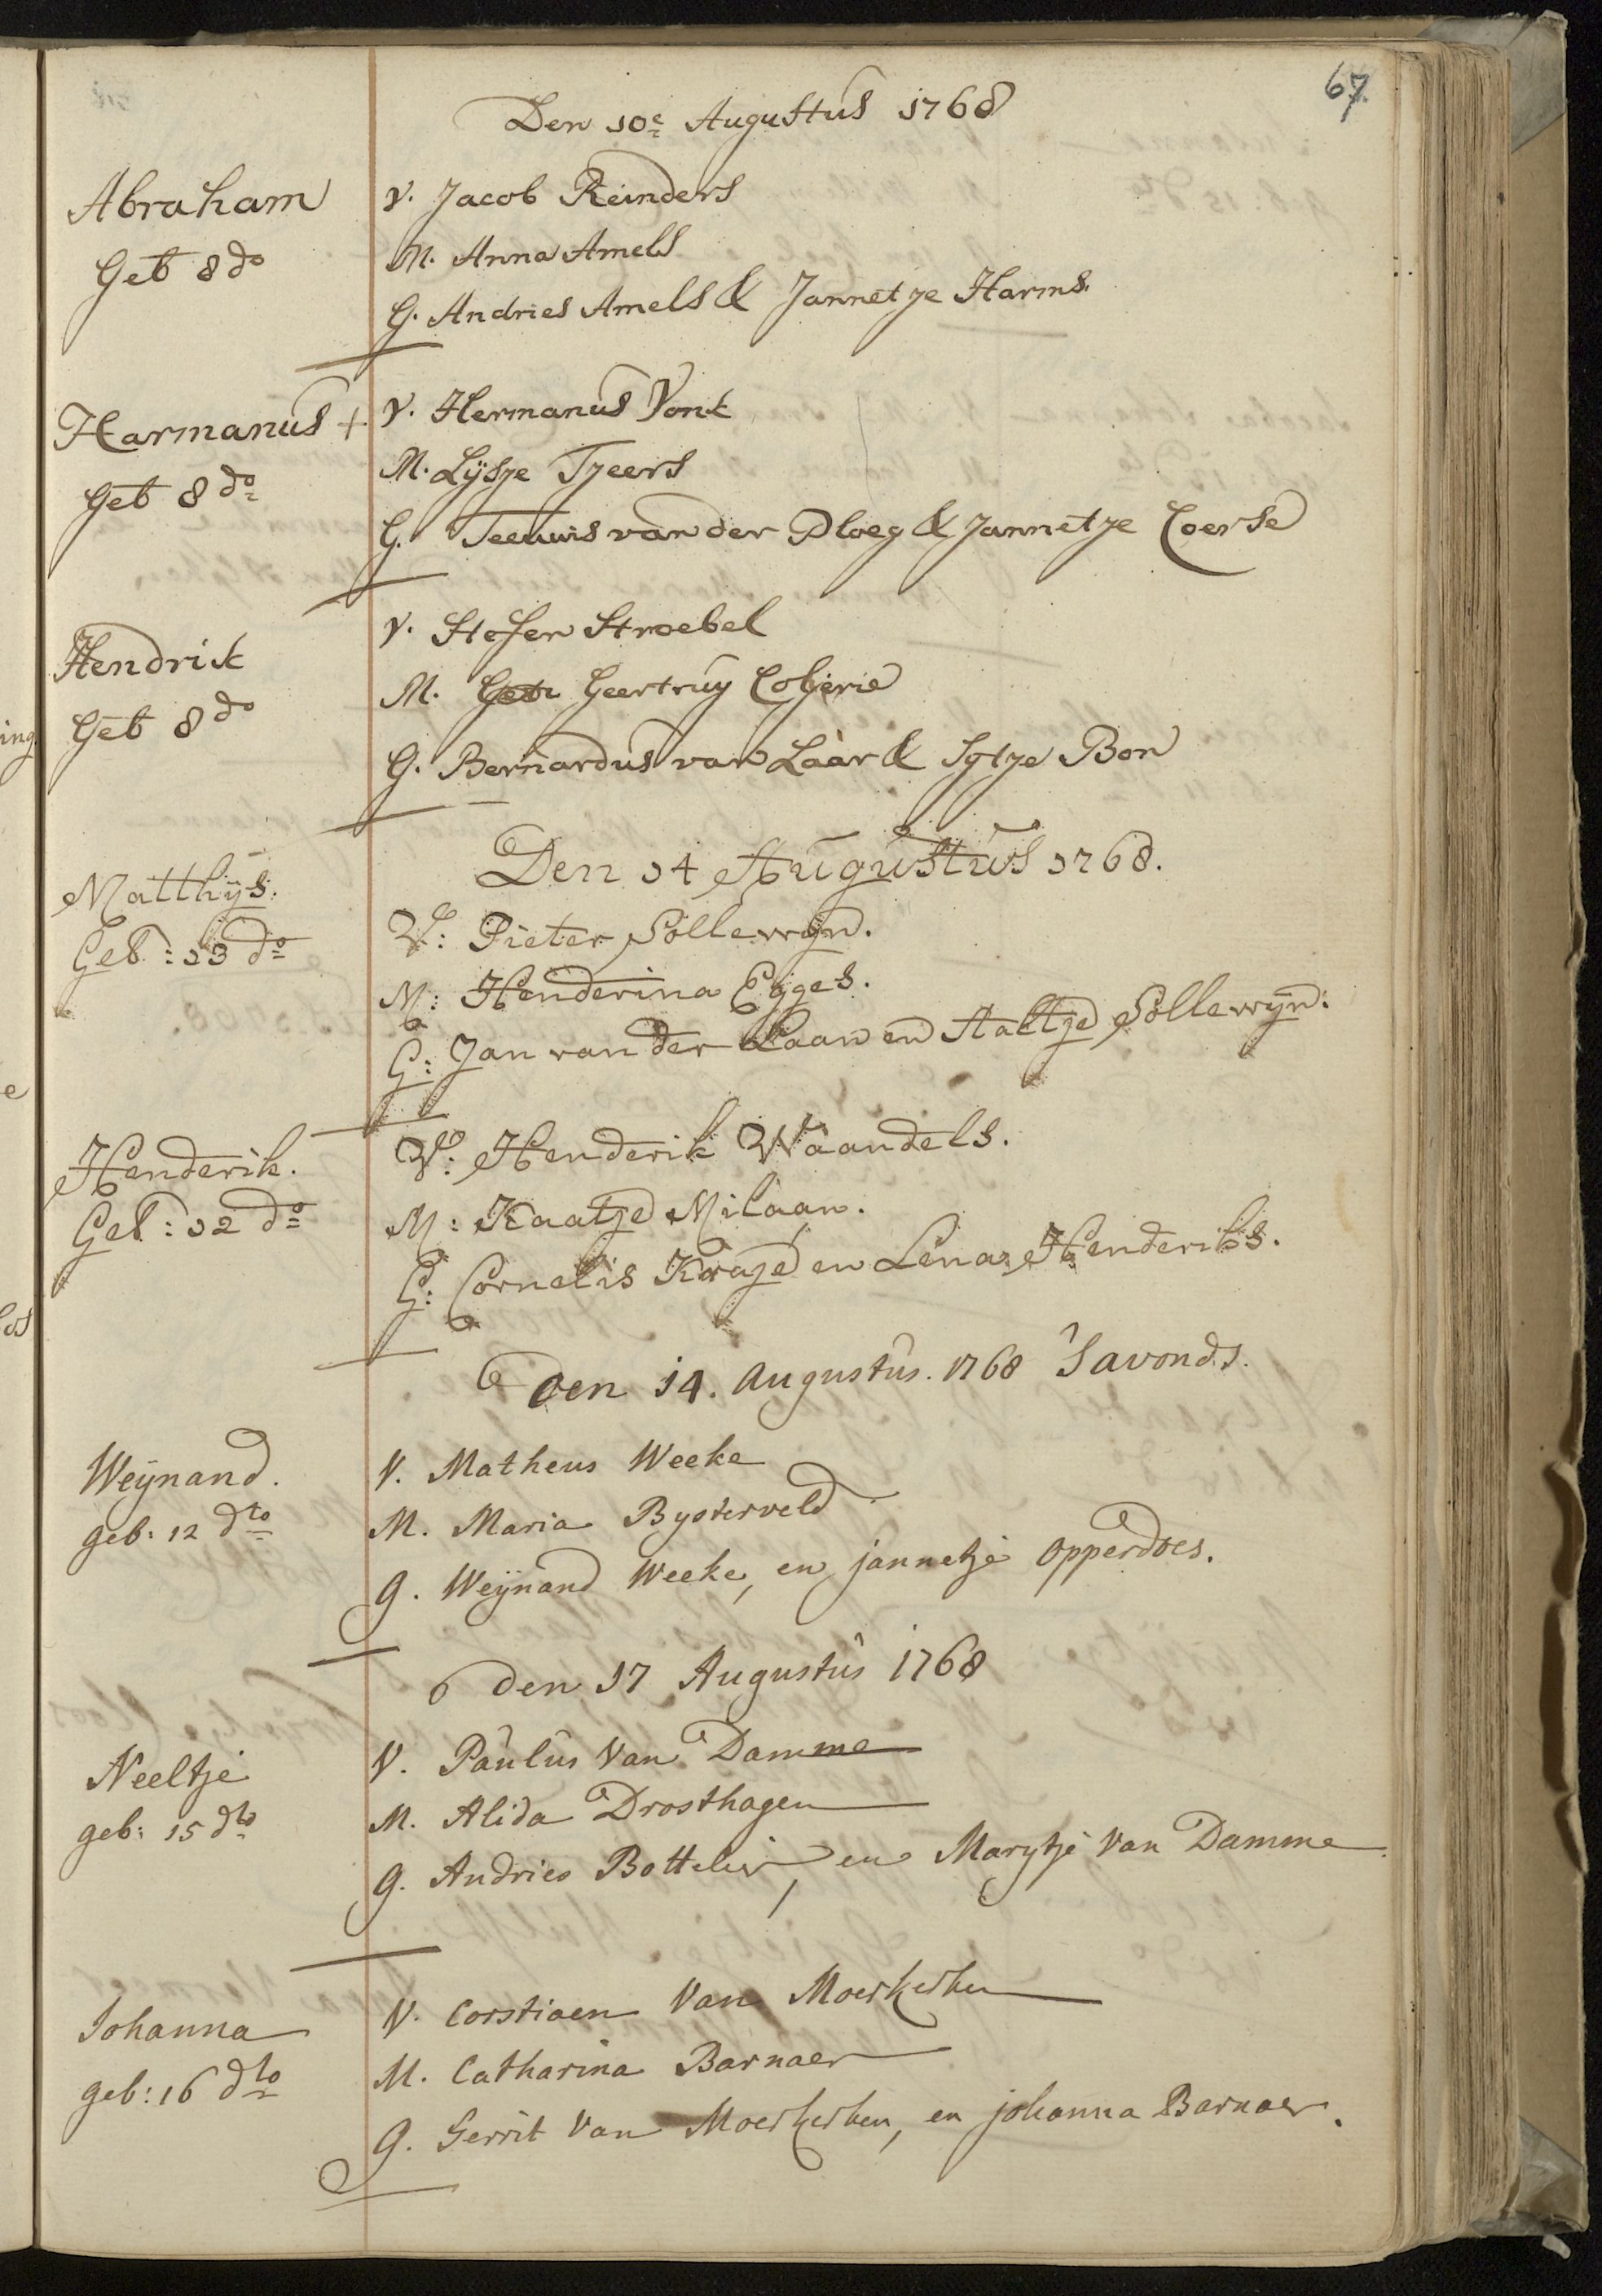 67.
Den 10e Augustus 1768
Abraham
Geb 8 do
V. Jacob Reinders
M. Anna Amels
G. Andries Amels & Jannetje Harms.
Harmanus +
Geb 8 do
V. Hermanus Vonk
M. Lijsje Tjeers
G. Teeuwis van der Ploeg & Jannetje Coerse
Hendrik
Geb 8 do
V. Stefen Stroebel
M. Geertruy Coljerie
G. Bernardus van Laar & Sytje Bon
Den 14 Augustus 1768.
Matthijs.
Geb: 13 do
V: Pieter Sollewijn.
M: Henderina Egges.
G: Jan van der Laan en Aaltje Sollewijn.
Henderik.
Geb: 12 do
V: Henderik Waandels.
M: Kaatje Milaan.
G: Cornelis Kraje en Lena Henderiks.
Den 14. Augustus. 1768 'Savonds.
Weijnand.
geb: 12 dto
V. Matheus Weeke
M. Maria Bysterveld
G. Weijnand Weeke, en jannetje Opperdoes.
den 17 Augustus 1768
Neeltje
geb: 15 dto
V. Paulus Van Damme
M. Alida Drosthagen
G. Andries Bottelier, en Marytje Van Damme
Johanna
geb: 16 dto
V. Corstiaen Van Moerkerken
M. Catharina Barnaer
G. Gerrit Van Moerkerken, en johanna Barnaer.